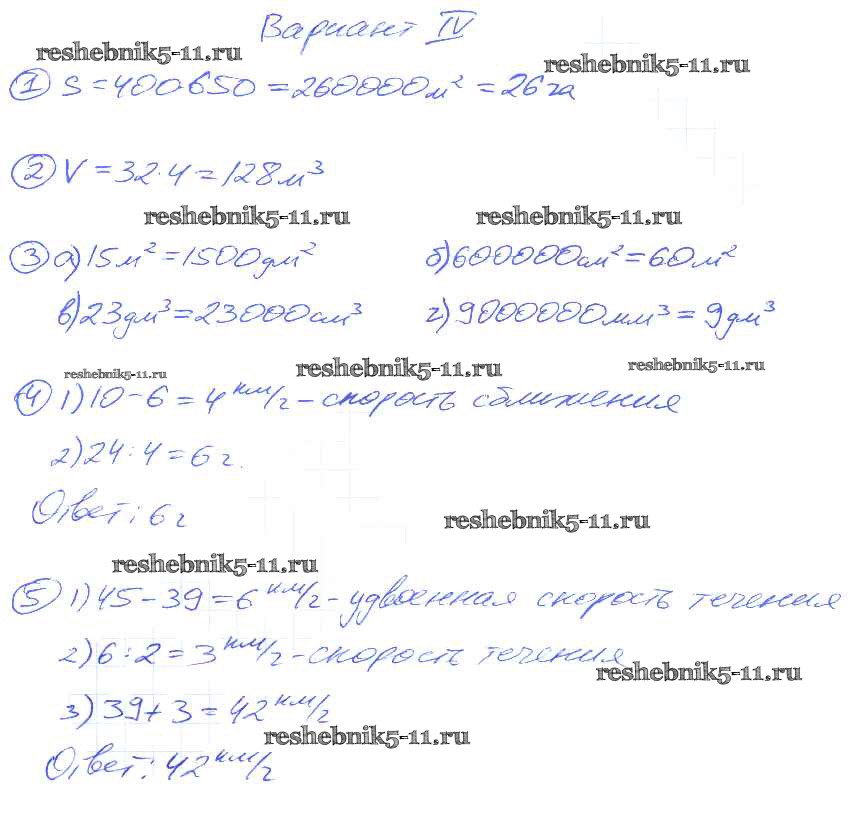 Вариант IV
reshebnik5-11.ru
reshebnik5-11.ru
① S = 400·650 = 260000 м² = 26 га
② V = 32·4 = 128 м³
reshebnik5-11.ru reshebnik5-11.ru
③ а) 15 м² = 1500 дм² б) 600000 см² = 60 м²
в) 23 дм³ = 23000 см³ г) 9000000 мм³ = 9 дм³
reshebnik5-11.ru reshebnik5-11.ru reshebnik5-11.ru
④ 1) 10 - 6 = 4 км/ч - скорость сближения
2) 24 : 4 = 6 ч.
Ответ: 6 ч
reshebnik5-11.ru
reshebnik5-11.ru
⑤ 1) 45 - 39 = 6 км/ч - удвоенная скорость течения
2) 6 : 2 = 3 км/ч - скорость течения
reshebnik5-11.ru
3) 39 + 3 = 42 км/ч
reshebnik5-11.ru
Ответ: 42 км/ч